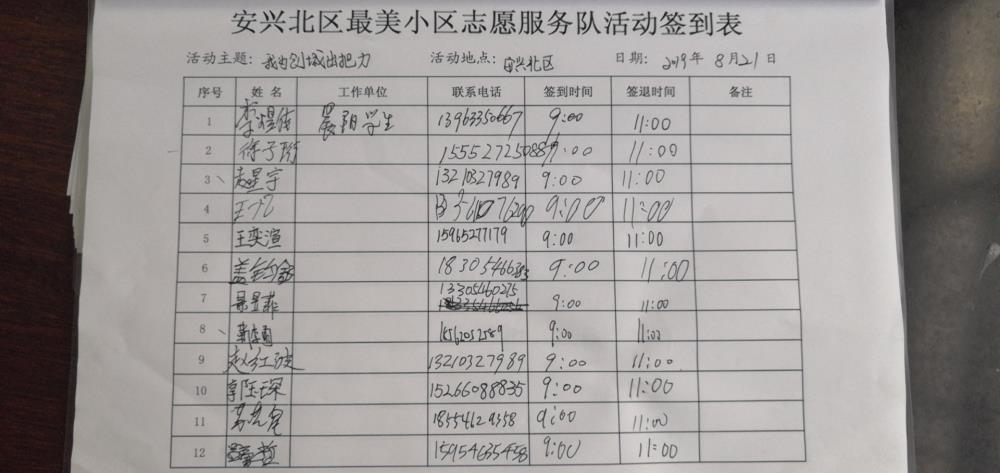 安兴北区最美小区志愿服务队活动签到表
活动主题：我为创城出把力 活动地点：安兴北区 日期：2019年8月21日
序号 姓名 工作单位 联系电话 签到时间 签退时间 备注
1 李煜 晨阳学生 13963350667 9:00 11:00
2 徐子 15552725088 9:00 11:00
3 星宇 13210327989 9:00 11:00
4 王 9:00 11:00
5 王奕渲 15965277179 9:00 11:00
6 盖 18305466 9:00 11:00
7 13305460275 9:00 11:00
8 18562052589 9:00 11:00
9 赵红 13210327989 9:00 11:00
10 郭玉琛 15266088835 9:00 11:00
11 18554629358 9:00 11:00
12 哲 15954635458 9:00 11:00